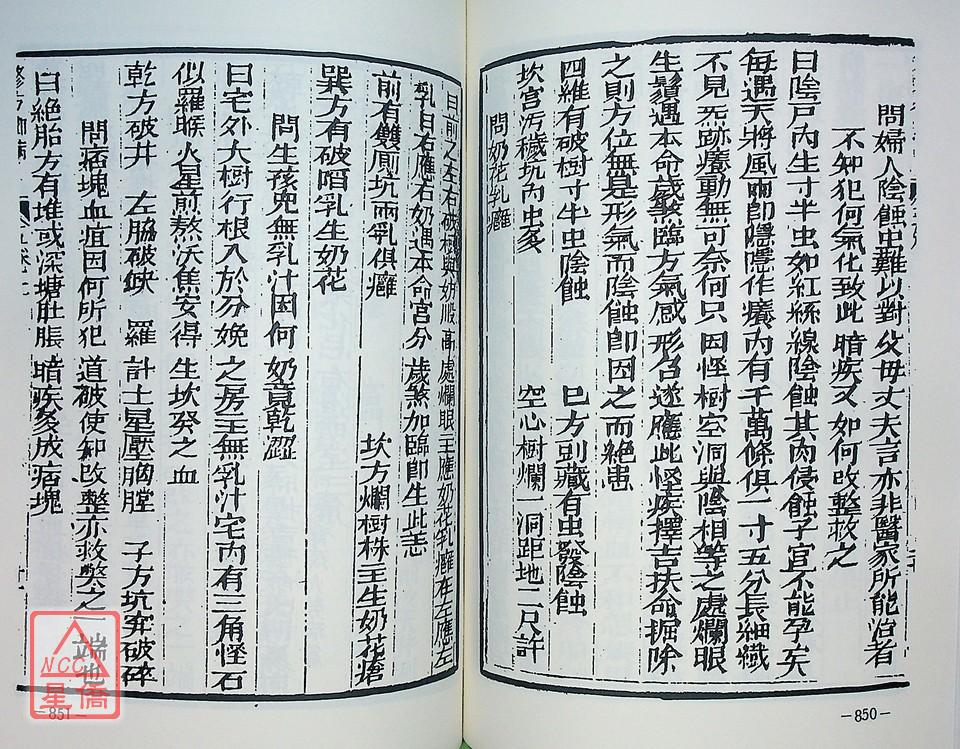 問婦人陰蝕虫難以對父母丈夫言亦非醫家所能治者
不知犯何氣化致此暗疾又如何改整救之
曰陰戶內生寸半虫如紅絲線陰蝕其肉侵蝕子宮不能孕矣
每遇天將風雨即隱隱作癢內有千萬條俱一寸五分長細纖
不見形跡癢動無可奈何只因怪樹空洞與陰相等之處爛眼
生鬚遇本命歲煞臨方氣感形召遂應此怪疾擇吉扶命掘除
之則方位無是形氣而陰蝕即因之而絕患
四維有破樹寸半虫陰蝕　巳方剅藏有虫發陰蝕
坎宮污穢坑內虫多　空心樹爛一洞距地二尺許
問奶花乳癰
曰前之左右破樹與奶般高處爛眼主應奶花乳癰在左應左
乳白右應右奶遇本命宮分　歲煞加臨即生此恙
前有雙廁坑兩乳俱癰　坎方爛樹株主生奶花瘡
巽方有破陷乳生奶花
問生孩兒無乳汁因何奶竟乾澀
曰宅外大樹行根入於分娩之房主無乳汁宅內有三角怪石
似羅睺火星前熬洗焦安得生坎癸之血
乾方破井　左脇破缺　羅計土星壓胸膛　子方坑穽破碎
問痞塊血疽因何所犯　道破使知改整亦救獘之一端也
曰絕胎方有堆或深塘肚脹　暗疾多成痞塊
修方却病
NCC
星僑
—851—
—850—